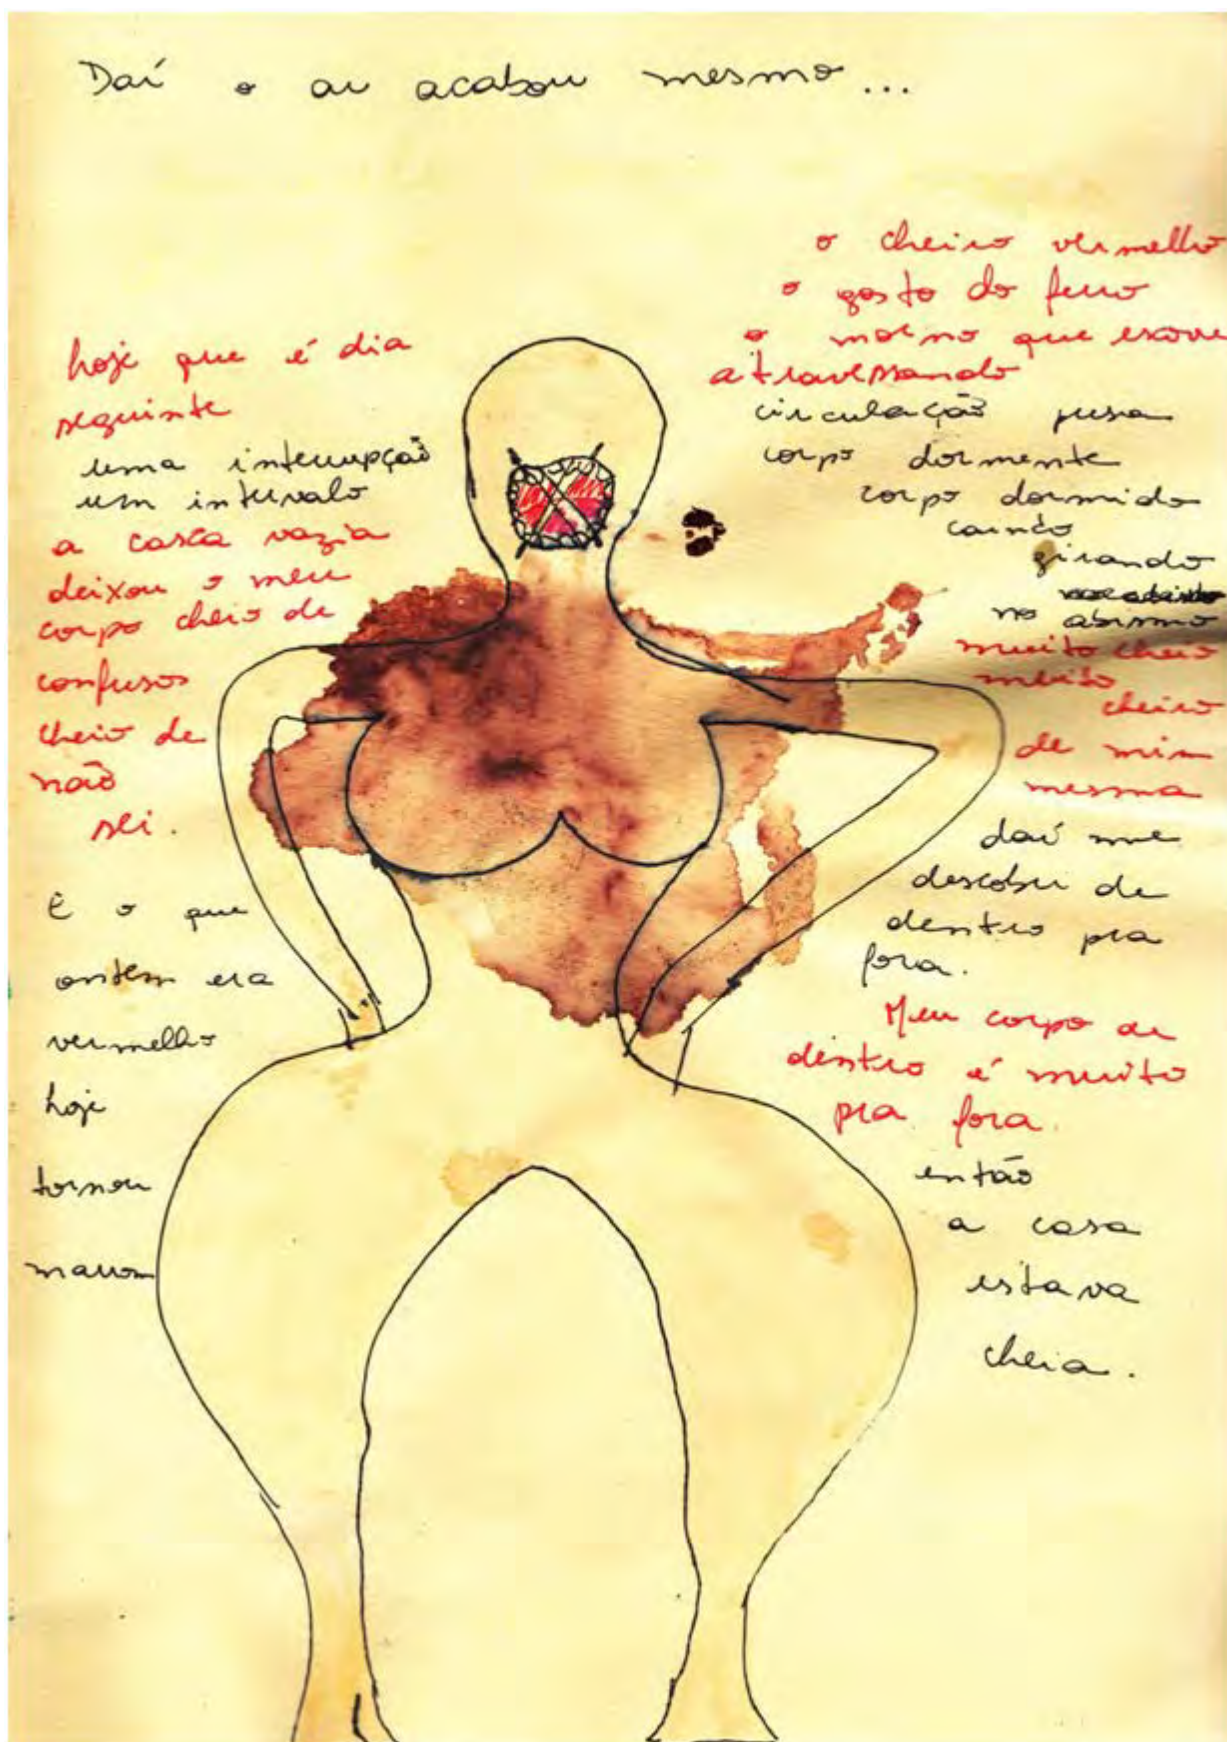 Daí o ar acabou mesmo...
hoje que é dia
seguinte
uma interrupção
um intervalo
a casca vazia
deixou o meu
corpo cheio de
confusos
cheio de
não
sei.
E o que
ontem era
vermelho
hoje
tornou
marrom
o cheiro vermelho
o gosto do ferro
o morno que escorre
atravessando
circulação pesa
corpo dormente
corpo dormido
caindo
girando
no abismo
muito cheio
muito
cheiro
de mim
mesma
daí me
descobri de
dentro pra
fora.
Meu corpo de
dentro é muito
pra fora.
então
a casa
estava
cheia.